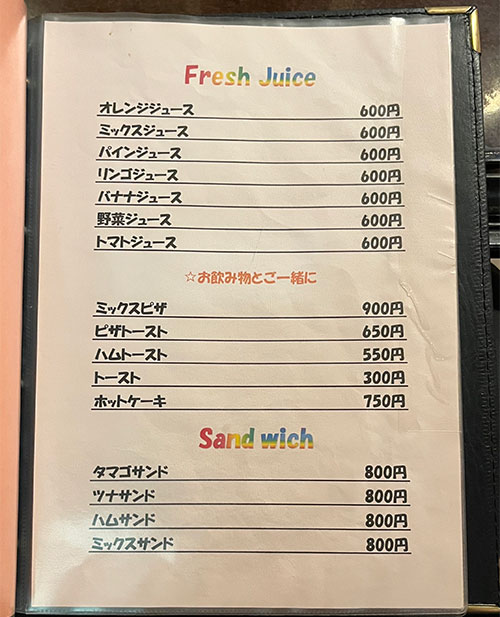 Fresh Juice
オレンジジュース 600円
ミックスジュース 600円
パインジュース 600円
リンゴジュース 600円
バナナジュース 600円
野菜ジュース 600円
トマトジュース 600円
☆お飲み物とご一緒に
ミックスピザ 900円
ピザトースト 650円
ハムトースト 550円
トースト 300円
ホットケーキ 750円
Sand wich
タマゴサンド 800円
ツナサンド 800円
ハムサンド 800円
ミックスサンド 800円